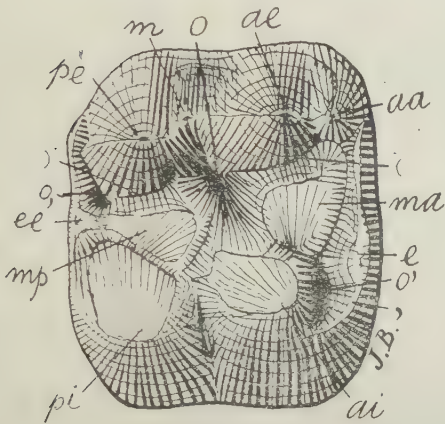 m o ae
pé aa
) (
o, ma
ee e
mp o'
J.B.
pi ai